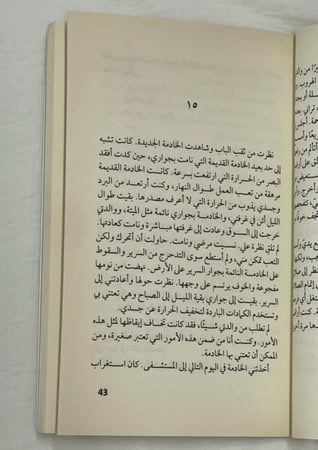 ١٥
نظرت من ثقب الباب وشاهدت الخادمة الجديدة. كانت تشبه
إلى حد بعيد الخادمة القديمة التي نامت بجواري، حين كدت أفقد
البصر من الحرارة التي ارتفعت بسرعة. كانت الخادمة القديمة
مرهقة من تعب العمل طوال النهار، وكنت أرتعد من البرد
وجسدي يذوب من الحرارة التي لا أعرف مصدرها. بقيت طوال
الليل أئن في غرفتي، والخادمة بجواري نائمة مثل الميتة، ووالدتي
خرجت إلى السوق وعادت إلى غرفتها مباشرة ونامت كعادتها.
لم تلق نظرة علي. نسيت مرضي ونامت. حاولت أن أتحرك ولكن
التعب تمكن مني، ولم أستطع سوى التدحرج من السرير والسقوط
على الخادمة النائمة بجوار السرير على الأرض. نهضت من نومها
مفجوعة والخوف يرتسم على وجهها. نظرت حولها وأعادتني إلى
السرير. بقيت إلى جواري بقية الليل إلى الصباح وهي تعتني بي
وتستخدم الكمادات الباردة لتخفيف الحرارة عن جسدي.
لم تطلب من والدتي شيئًا، فقد كانت تخاف إيقاظها لمثل هذه
الأمور. وكنت أنا من ضمن هذه الأمور التي تعتبر صغيرة، ومن
الممكن أن تعتني بها الخادمة.
أخذتني الخادمة في اليوم التالي إلى المستشفى. كان استغراب
43